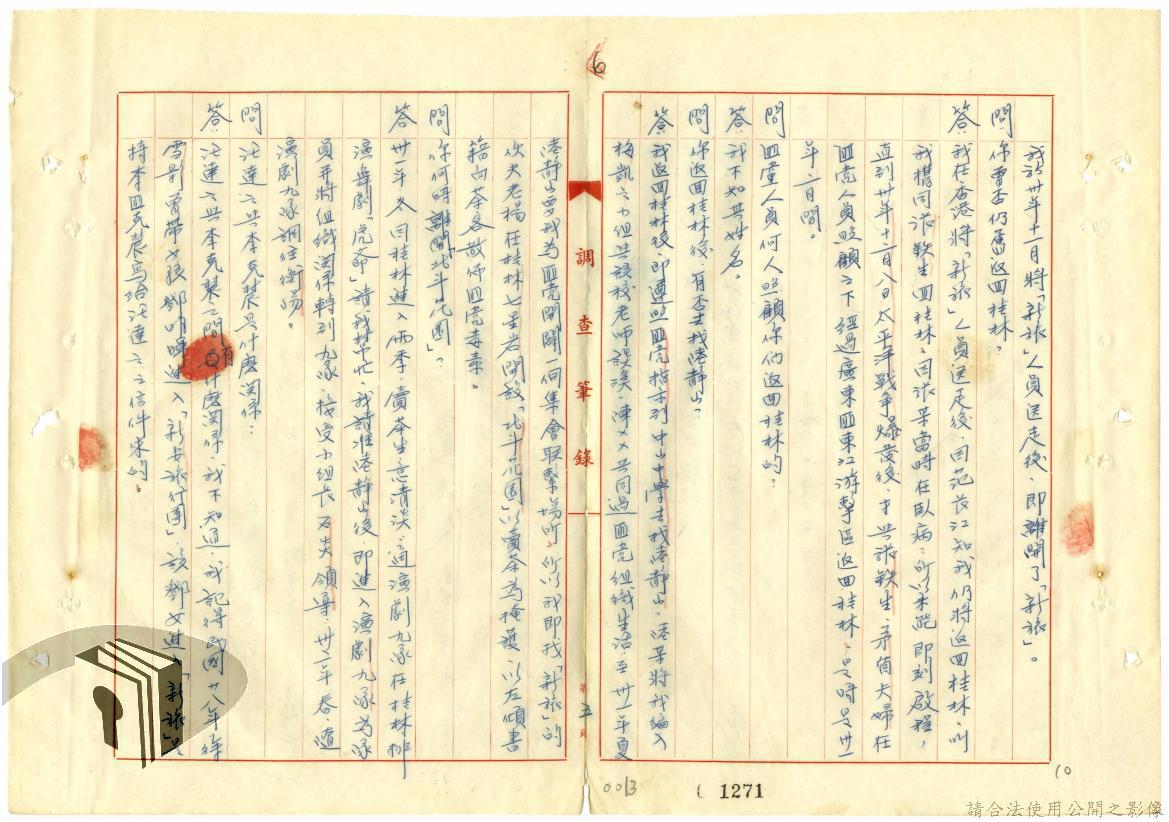 6
我於卅年十一月將「新旅」人員送走後、即離開了「新旅」。
問 你曾否仍舊返回桂林?
答 我在香港將「新旅」人員送走後、因范長江知我仍將返回桂林、叫
我攜同張鉄生回桂林、因張某當時在臥病、所以未能即刻啟程,
直到卅年十二月八日太平洋戰争爆發後、才共張鉄生、茅盾夫婦在
匪党人員照顧之下經過廣東匪東江游擊區返回桂林、是時是卅一
年二月間。
問 匪黨人員何人照顧你們返回桂林的?
答 我不知其姓名。
問 你返回桂林後、有否去找 靜山?
答 我返回桂林後、即遵照匪党指示到中山中學去找 靜山、 某將我編入
小組共該校老師 漢、陳××共同過匪党組織生活至卅一年夏
靜山要我為匪党開闢一個集會联繫場所、所以我即找「新旅」的
火夫老楊在桂林七星岩開設「北斗花園」以賣茶為掩護、以左傾書
籍向茶客散佈匪党毒素。
問 你何時離開「北斗花園」?
答 卅一年冬因桂林進入雨季、賣茶生意清淡、適演劇九隊在桂林排
演舞劇「虎爺」請我幫忙、我請准 靜山後即進入演劇九隊為隊
員并將組織関係轉到九隊、接受小組長石炎領導、卅二年春、隨
演劇九隊調往衡陽。
問 汪達之共李克農是什麼関係?
答 汪達之共李克農之間有什麼関係、我不知道、我記得民國廿八年徐
雪影曾帶女孩鄒明暉進入「新安旅行團」、該鄒女進入「新旅」是
持李匪克農寫給汪達之之信件來的。
調查筆錄
第五頁
0013
1271
10
請合法使用公開之影像